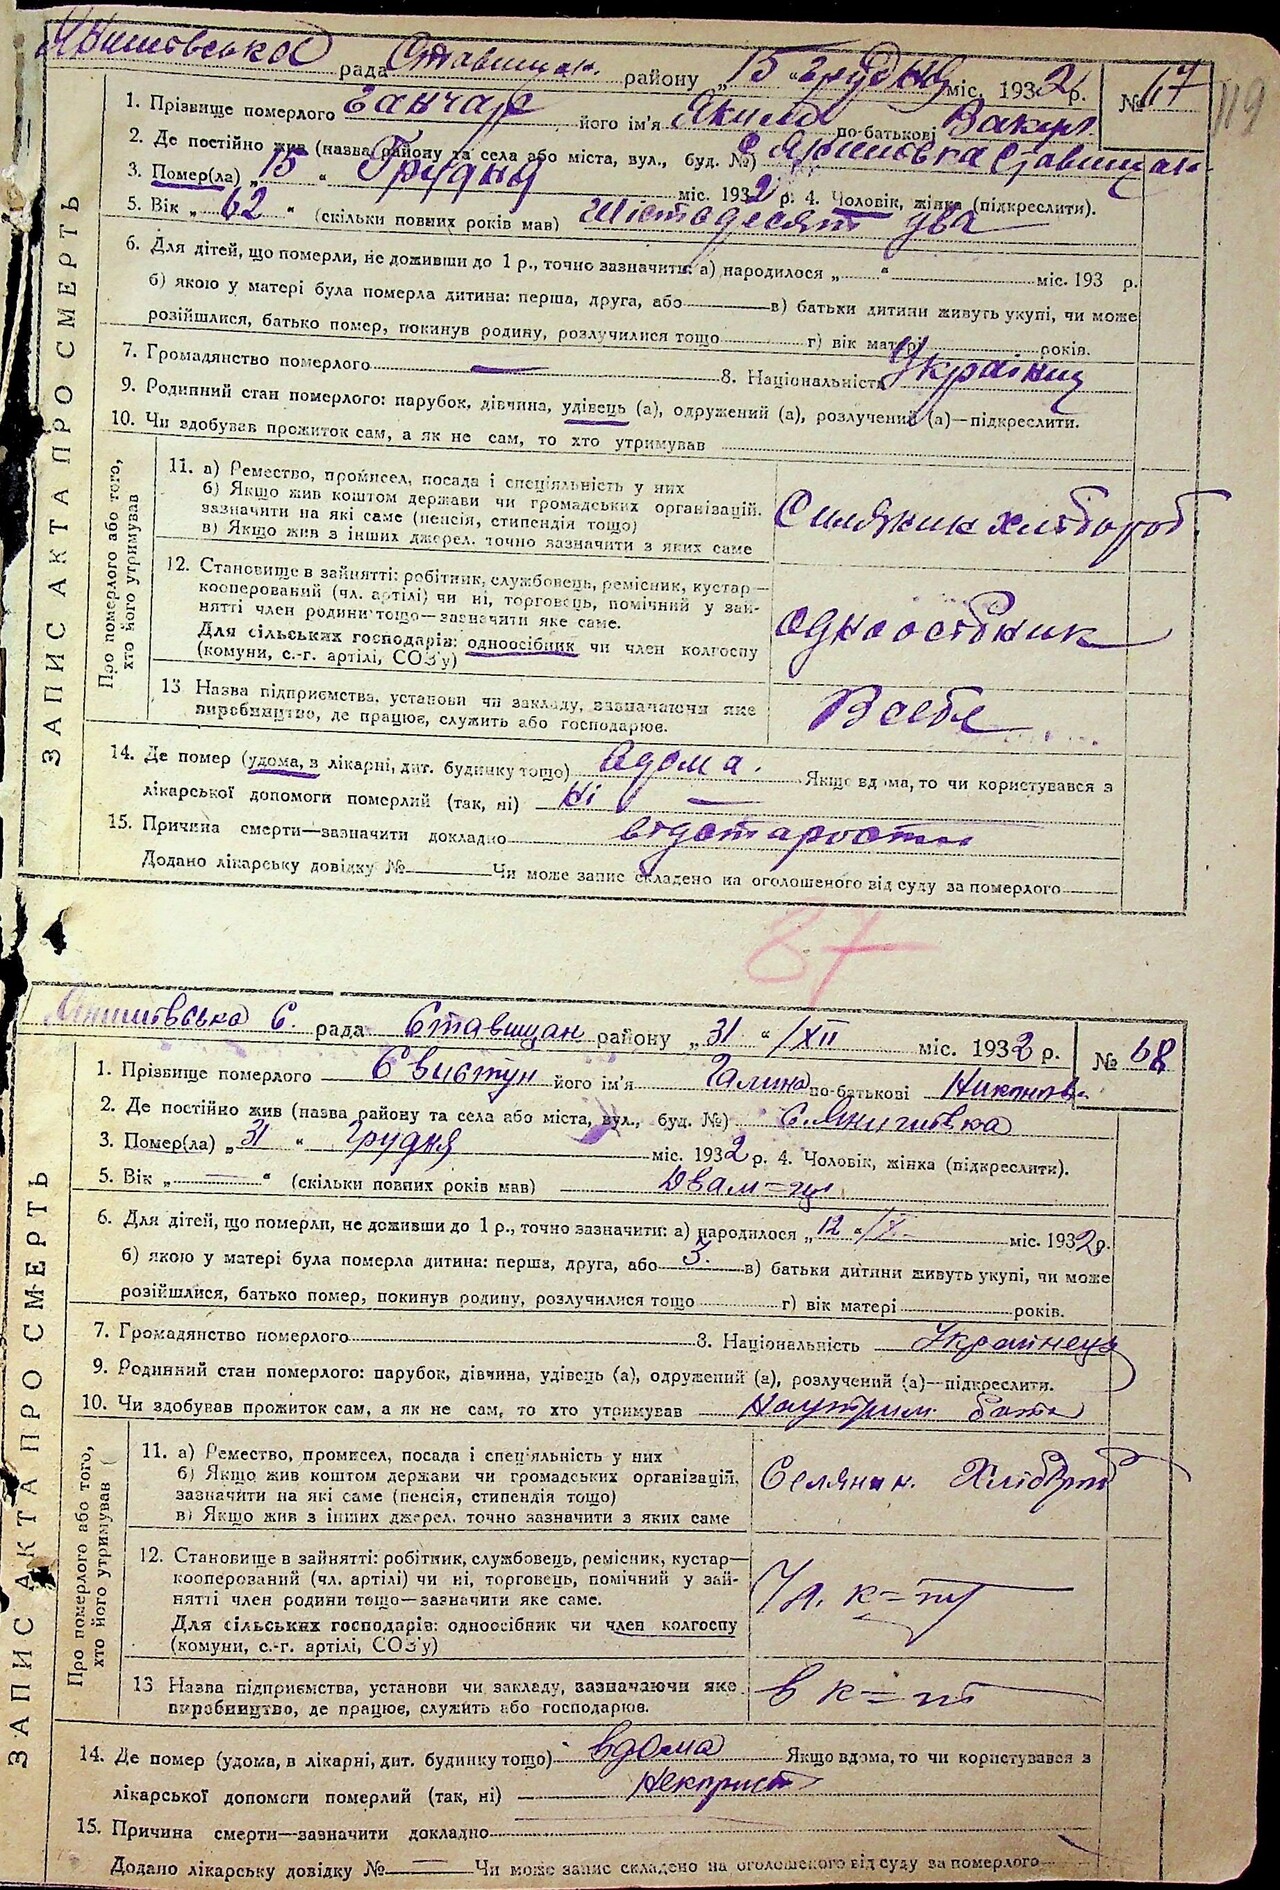 Янишовська рада Ставищан. району „ 15 “ Грудня міс. 1932 р. № 67
119
ЗАПИС АКТА ПРО СМЕРТЬ
1. Прізвище померлого Ганчар його ім'я Якило по-батькові Вакул.
2. Де постійно жив (назва району та села або міста, вул., буд. №) с Янишовка Ставищан.
3. Помер(ла) „ 15 “ Грудня міс. 1932 р. 4. Чоловік, жінка (підкреслити).
5. Вік „ 62 “ (скільки повних років мав) Шістодесят два
6. Для дітей, що померли, не доживши до 1 р., точно зазначити: а) народилося „ “ міс. 193 р.
б) якою у матері була померла дитина: перша, друга, або в) батьки дитини живуть укупі, чи може
розійшлися, батько помер, покинув родину, розлучилися тощо г) вік матері років.
7. Громадянство померлого — 8. Національність Українец
9. Родинний стан померлого: парубок, дівчина, удівець (а), одружений (а), розлучений (а)—підкреслити.
10. Чи здобував прожиток сам, а як не сам, то хто утримував
Про померлого або того, хто його утримував
11. а) Ремество, промисел, посада і спеціяльність у них
б) Якщо жив коштом держави чи громадських організацій,
зазначити на які саме (пенсія, стипендія тощо)
в) Якщо жив з інших джерел, точно зазначити з яких саме
Силяник хлібороб
12. Становище в зайнятті: робітник, службовець, ремісник, кустар—
кооперований (чл. артілі) чи ні, торговець, помічний у зай-
нятті член родини тощо—зазначити яке саме.
Для сільських господарів: одноосібник чи член колгоспу
(комуни, с.-г. артілі, СОЗ'у)
одноосібник
13 Назва підприємства, установи чи закладу, зазначаючи яке
виробництво, де працює, служить або господарює.
В себе
14. Де помер (удома, в лікарні, дит. будинку тощо) вдома. Якщо вдома, то чи користувався з
лікарської допомоги померлий (так, ні) ні —
15. Причина смерти—зазначити докладно від старости
Додано лікарську довідку № Чи може запис складено на оголошеного від суду за померлого
87
Янишівська С. рада Ставищан району „ 31 “ /XII міс. 1932 р. № 68
ЗАПИС АКТА ПРО СМЕРТЬ
1. Прізвище померлого Свистун його ім'я Галина по-батькові Никонов.
2. Де постійно жив (назва району та села або міста, вул., буд. №) С. Янишівка
3. Помер(ла) „ 31 “ Грудня міс. 1932 р. 4. Чоловік, жінка (підкреслити).
5. Вік „ — “ (скільки повних років мав) Два м=ці
6. Для дітей, що померли, не доживши до 1 р., точно зазначити: а) народилося „ 12 “ /X. міс. 1932 р.
б) якою у матері була померла дитина: перша, друга, або 3. в) батьки дитини живуть укупі, чи може
розійшлися, батько помер, покинув родину, розлучилися тощо г) вік матері років.
7. Громадянство померлого 8. Національність Українець
9. Родинний стан померлого: парубок, дівчина, удівець (а), одружений (а), розлучений (а)—підкреслити.
10. Чи здобував прожиток сам, а як не сам, то хто утримував На утрим. бать
Про померлого або того, хто його утримував
11. а) Ремество, промисел, посада і спеціяльність у них
б) Якщо жив коштом держави чи громадських організацій,
зазначити на які саме (пенсія, стипендія тощо)
в) Якщо жив з інших джерел, точно зазначити з яких саме
Селянин. Хлібороб
12. Становище в зайнятті: робітник, службовець, ремісник, кустар—
кооперований (чл. артілі) чи ні, торговець, помічний у зай-
нятті член родини тощо—зазначити яке саме.
Для сільських господарів: одноосібник чи член колгоспу
(комуни, с.-г. артілі, СОЗ'у)
Чл. к=пу
13 Назва підприємства, установи чи закладу, зазначаючи яке
виробництво, де працює, служить або господарює.
в к=пі
14. Де помер (удома, в лікарні, дит. будинку тощо) вдома Якщо вдома, то чи користувався з
лікарської допомоги померлий (так, ні)
15. Причина смерти—зазначити докладно
Додано лікарську довідку № — Чи може запис складено на оголошеного від суду за померлого